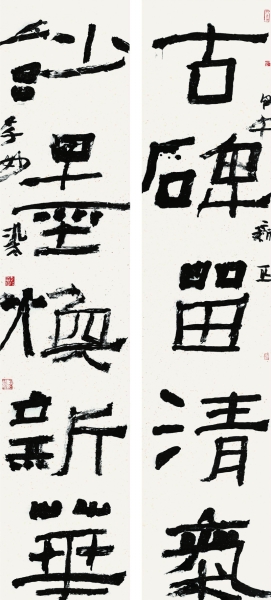 古碑畱清氣
甲午新正
訬墨煥新華